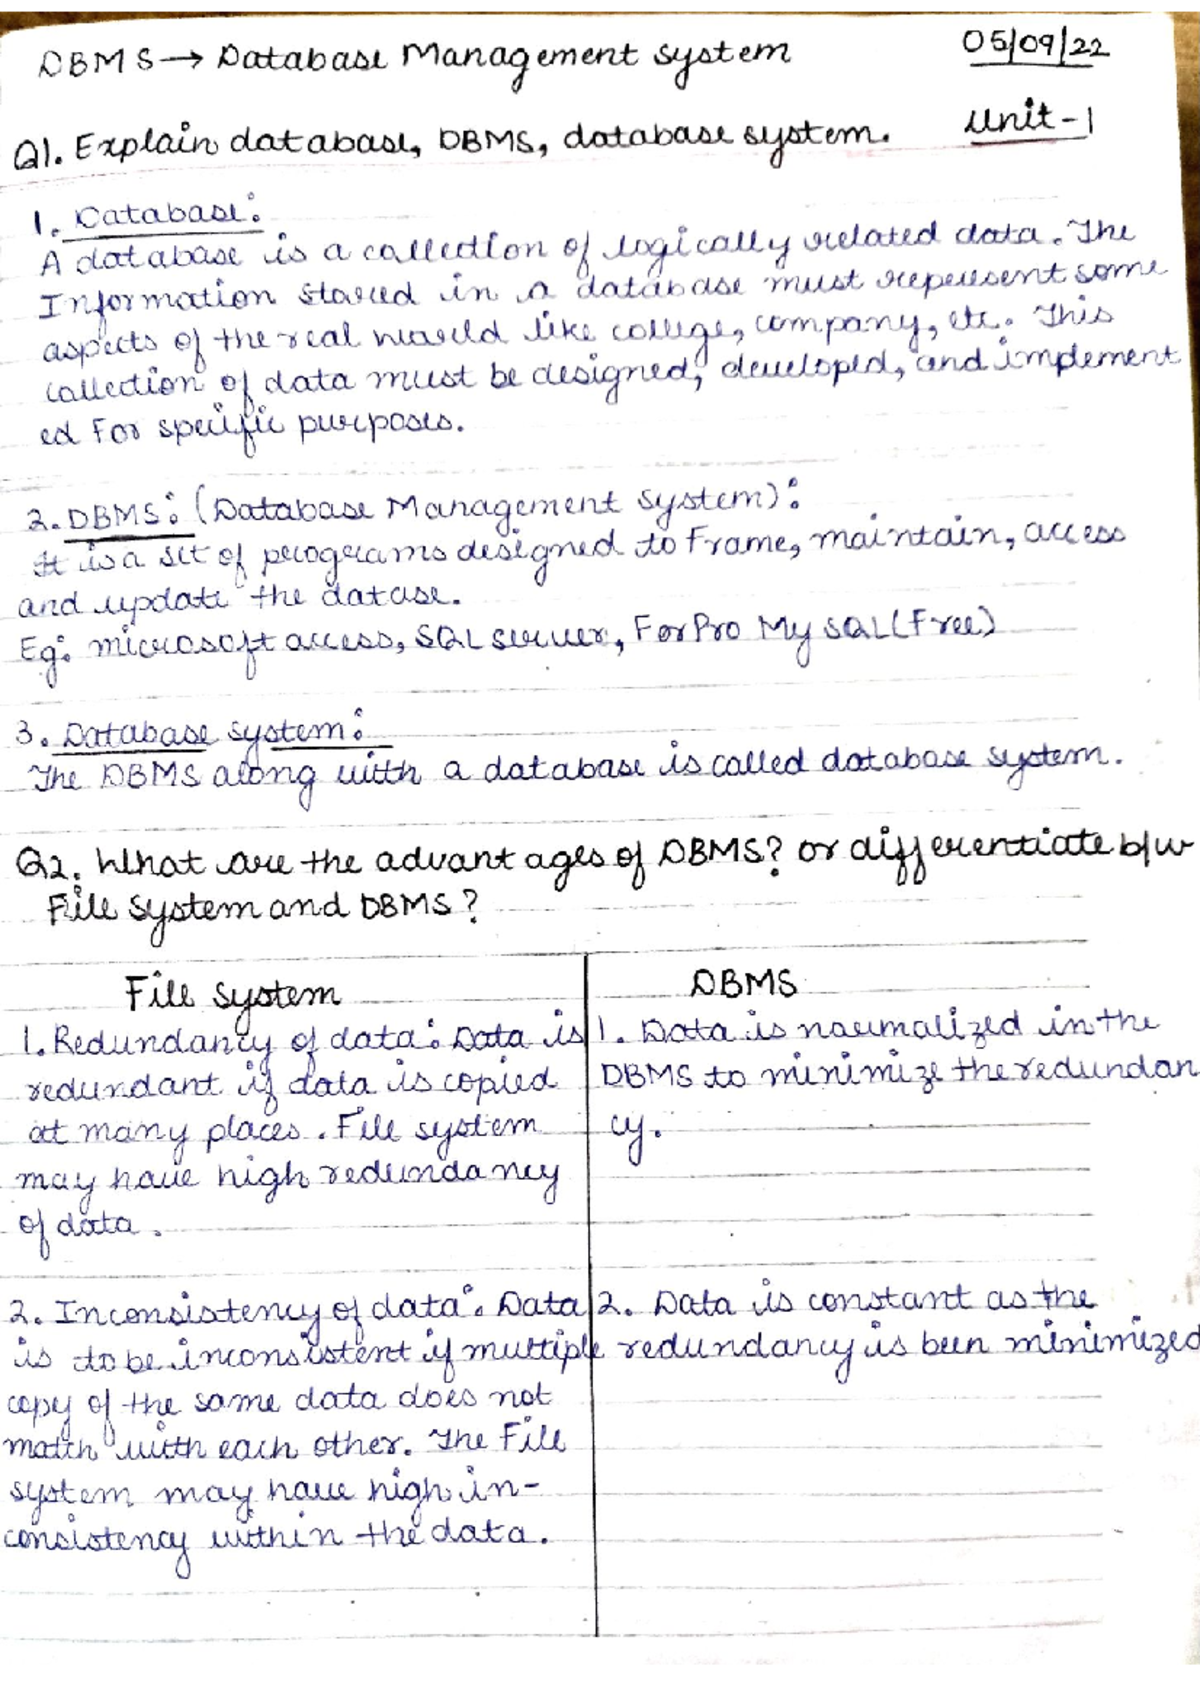 DBMS → Database Management system
05/09/22
Unit-1
Q1. Explain database, DBMS, database system.
1. Database:
A database is a collection of logically related data. The
Information stored in a database must represent some
aspects of the real world like college, company, etc. This
collection of data must be designed, developed, and implement
ed For specific purposes.
2. DBMS: (Database Management system):
It is a set of programs designed to Frame, maintain, access
and update the datase.
Eg: microsoft access, SQL server, ForPro My SQL (Free)
3. Database system:
The DBMS along with a database is called database system.
Q2. What are the advantages of DBMS? or differentiate b/w
File system and DBMS?
File system
1. Redundancy of data: Data is
redundant if data is copied
at many places. File system
may have high redundancy
of data.
2. Inconsistency of data: Data
is to be inconsistent if multiple
copy of the same data does not
match with each other. The File
system may have high in-
consistency within the data.
DBMS
1. Data is normalized in the
DBMS to minimize the redundan
cy.
2. Data is constant as the
redundancy is been minimized